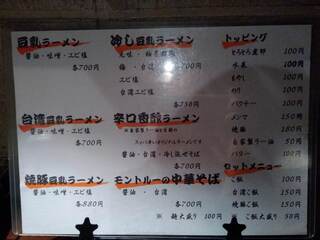 豆乳ラーメン
醤油・味噌・エビ塩
各700円
台湾豆乳ラーメン
醤油・味噌・エビ塩
各700円
焼豚豆乳ラーメン
醤油・味噌・エビ塩
各880円
冷し豆乳ラーメン
各700円
エビ塩
台湾エビ塩
各750円
辛口肉醤ラーメン
醤油・台湾・冷し混ぜそば
各700円
モントルーの中華そば
醤油・台湾
各700円
※ 麺大盛り 100円
トッピング
とろとろ煮卵 100円
水菜 100円
もやし 100円
のり 100円
パクチー 100円
メンマ 150円
焼豚 180円
自家製ラー油 50円
バター 100円
セットメニュー
ご飯 100円
台湾ご飯 150円
焼豚ご飯 150円
※ ご飯大盛り 50円